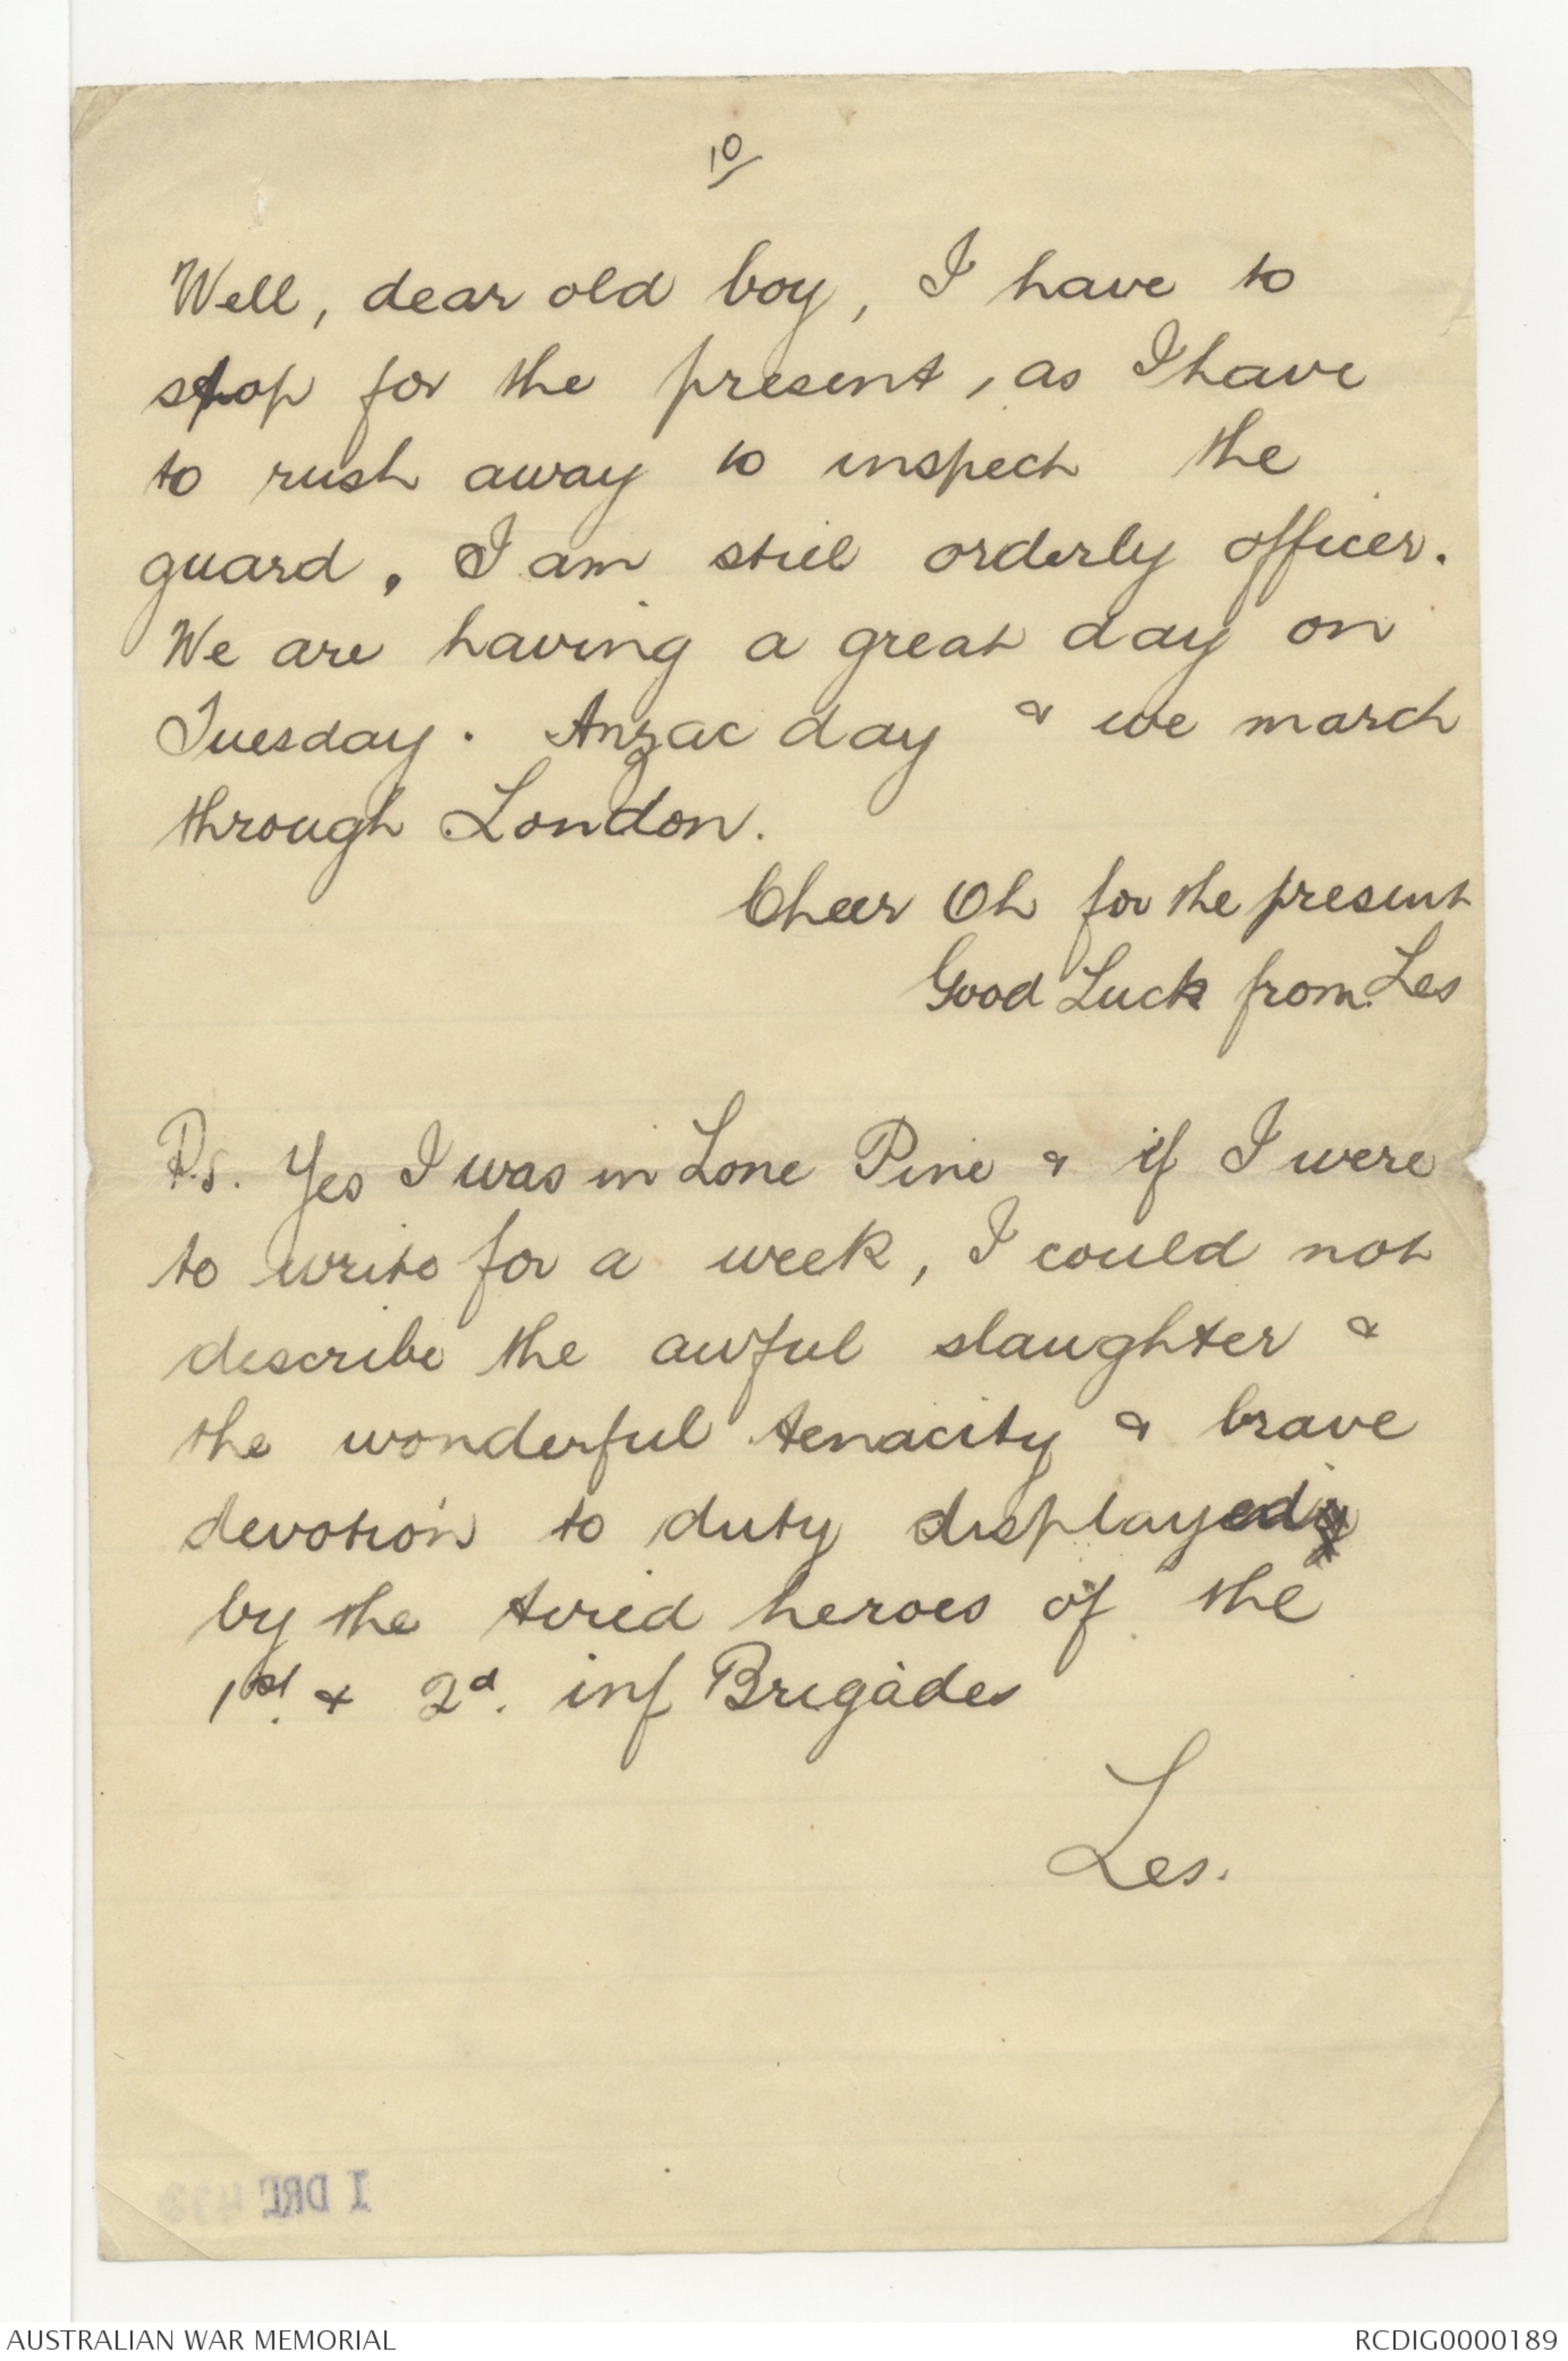 10/
Well, dear old boy, I have to
stop for the present, as I have
to rush away to inspect the
guard. I am still orderly officer.
We are having a great day on
Tuesday. Anzac day & we march
through London.
Cheer Oh for the present
Good Luck from Les
P.S. Yes I was in Lone Pine & if I were
to write for a week, I could not
describe the awful slaughter &
the wonderful tenacity & brave
devotion to duty displayed
by the tired heroes of the
1st. & 2d. inf Brigades
Les.
1 DRL
AUSTRALIAN WAR MEMORIAL
RCDIG0000189